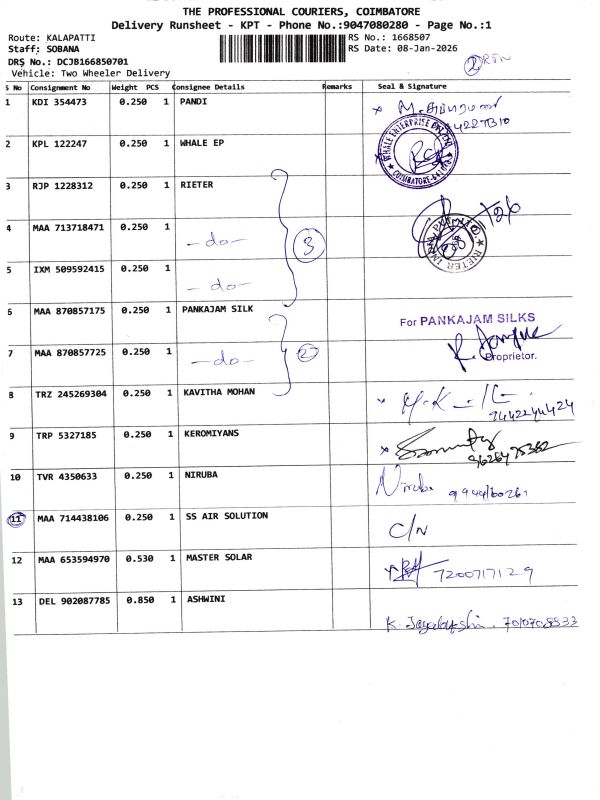 THE PROFESSIONAL COURIERS, COIMBATORE
Delivery Runsheet - KPT - Phone No.:9047080280 - Page No.:1
Route: KALAPATTI
RS No.: 1668507
Staff: SOBANA
RS Date: 08-Jan-2026
DRS No.: DCJB166850701
Vehicle: Two Wheeler Delivery
② RTN
S No Consignment No Weight PCS Consignee Details Remarks Seal & Signature
1 KDI 354473 0.250 1 PANDI
2 KPL 122247 0.250 1 WHALE EP
WHALE ENTERPRISE
COIMBATORE
3 RJP 1228312 0.250 1 RIETER
4 MAA 713718471 0.250 1 -do- ③
RIETER INDIA
5 IXM 509592415 0.250 1 -do-
6 MAA 870857175 0.250 1 PANKAJAM SILK
For PANKAJAM SILKS
Proprietor.
7 MAA 870857725 0.250 1 -do- ②
8 TRZ 245269304 0.250 1 KAVITHA MOHAN
9442244424
9 TRP 5327185 0.250 1 KEROMIYANS
10 TVR 4350633 0.250 1 NIRUBA Niruba 9944160261
11 MAA 714438106 0.250 1 SS AIR SOLUTION C/N
12 MAA 653594970 0.530 1 MASTER SOLAR 7200717129
13 DEL 902087785 0.850 1 ASHWINI